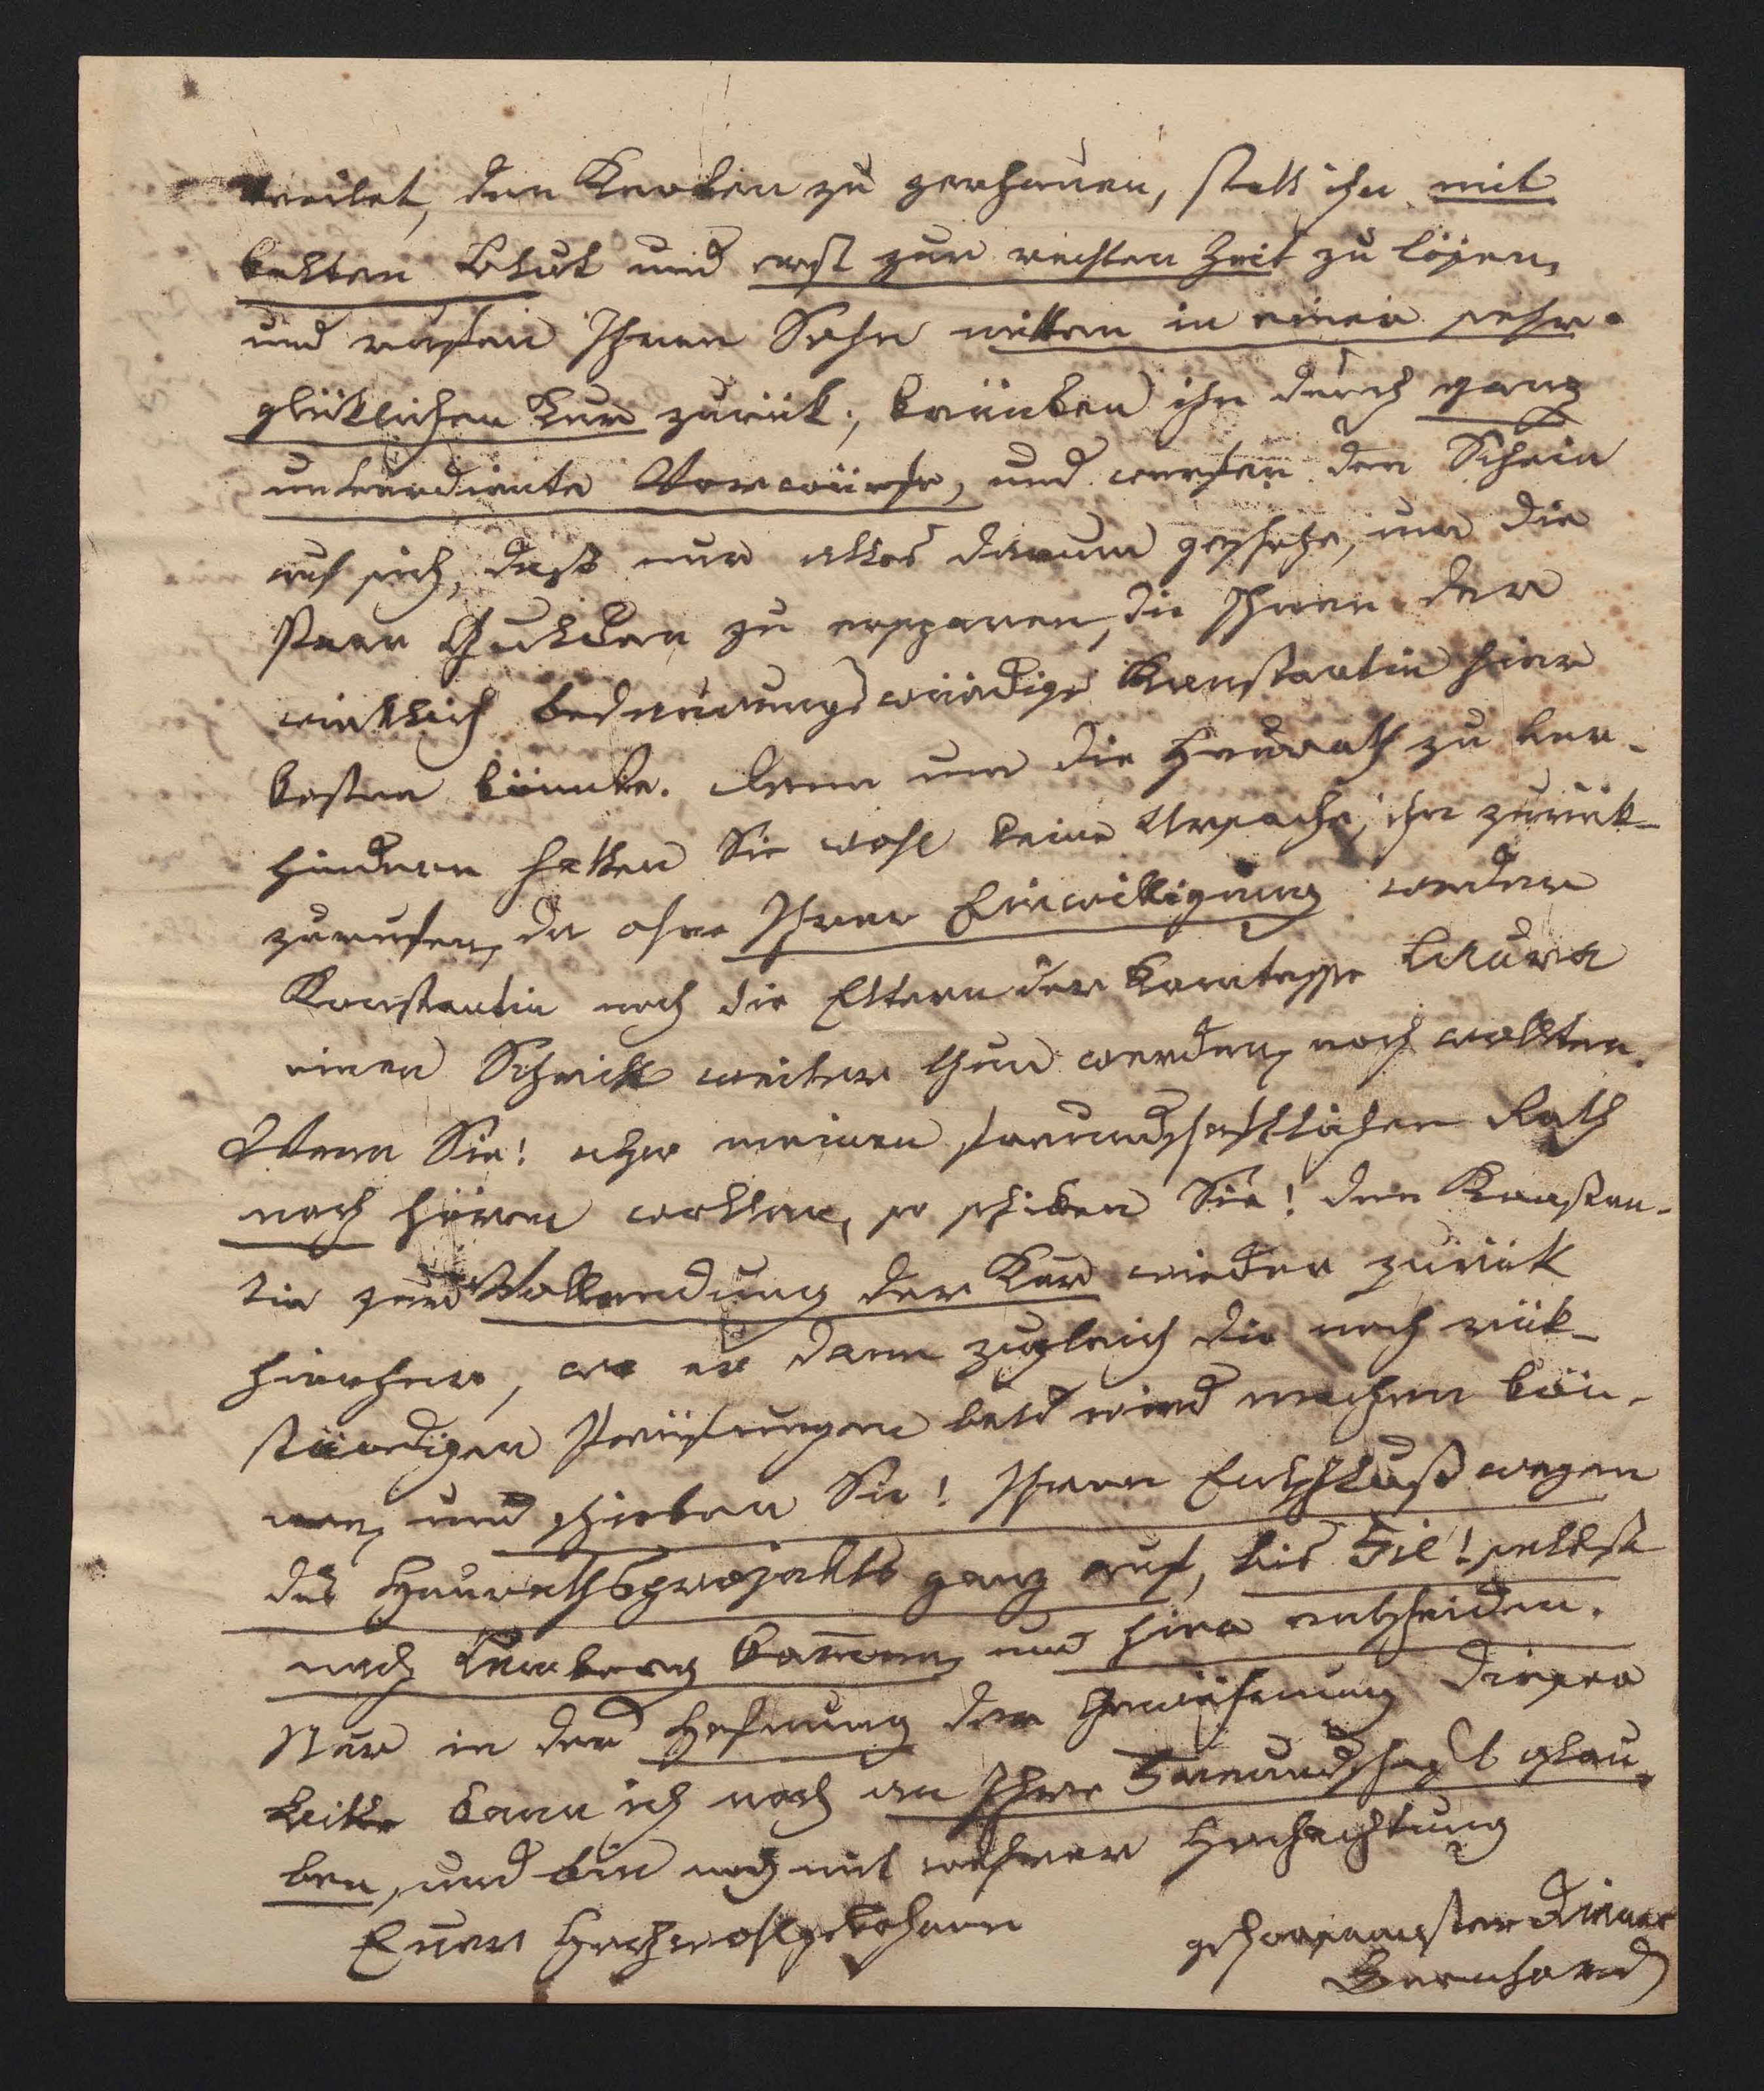 den Knoten zu zerhauen, statt ihn mit
kalten Blut und erst zur rechten Zeit zu lösen,
und rufen Ihren Sohn mitten in einer sehr
glüklichen Kur zurük; kränken ihn durch ganz
unverdiente Vorwürfe, und werfen den Schein
auf sich, daß nur alles darum geschehe, um die
Paar Gulden zu ersparen, die Ihnen der
wirklich bedaurungswürdige Konstantin hier
kosten könnte. Denn um die Heurath zu ver-
hindern hatten Sie wohl keine Ursache, ihn zurük-
zurufen, da ohne Ihrer Einwilligung weder
Konstantin noch die Eltern der Komtesse Laura
einen Schritt weiter thun werden, noch wollten.
Wenn Sie! aber meinen freundschaftlichen Rath
noch hören wollen, so schiken Sie! den Konstan-
tin zur Vollendung der Kur wieder zurük
hierher, wo er dann zugleich die noch rük-
ständigen Prüfungen bald wird machen kön-
nen, und schieben Sie! Ihren Entschluß wegen
des Heurathsprojekts ganz auf, bis Sie! selbst
nach Lemberg kommen, und hier entscheiden.
Nur in der Hofnung der Gewährung dieser
Bitte kann ich noch an Ihre Freundschaft glau-
ben, und bin noch mit wahrer Hochachtung
Euer Hochwohlgebohren
gehorsamster Diener
Bernhard